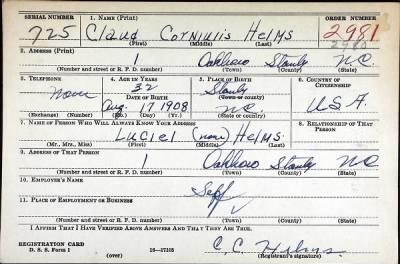 SERIAL NUMBER 1. NAME (Print) ORDER NUMBER
725 Claud Corniulis Helms 2981
(First) (Middle) (Last)
2. ADDRESS (Print)
1 Oakboro Stanly N.C.
(Number and street or R. F. D. number) (Town) (County) (State)
3. TELEPHONE 4. AGE IN YEARS 5. PLACE OF BIRTH 6. COUNTRY OF CITIZENSHIP
none 32 Stanly
DATE OF BIRTH (Town or county)
Aug. 17 1908 N.C. U.S.A.
(Exchange) (Number) (Mo.) (Day) (Yr.) (State or country)
7. NAME OF PERSON WHO WILL ALWAYS KNOW YOUR ADDRESS 8. RELATIONSHIP OF THAT PERSON
Luciel (none) Helms
(Mr., Mrs., Miss) (First) (Middle) (Last)
9. ADDRESS OF THAT PERSON
1 Oakboro Stanly N.C.
(Number and street or R. F. D. number) (Town) (County) (State)
10. EMPLOYER'S NAME
Self
11. PLACE OF EMPLOYMENT OR BUSINESS
(Number and street or R. F. D. number) (Town) (County) (State)
I AFFIRM THAT I HAVE VERIFIED ABOVE ANSWERS AND THAT THEY ARE TRUE.
REGISTRATION CARD
D. S. S. Form 1 (over) 16—17105 C. C. Helms
(Registrant's signature)